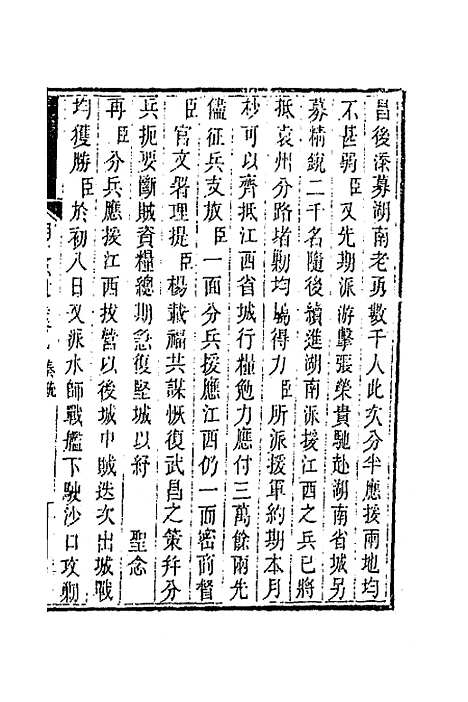 昌後添募湖南老勇數千人此次分半應援兩地均
不甚弱臣又先期派游擊張榮貴馳赴湖南省城另
募精銳二千名隨後續進湖南派援江西之兵已將
抵袁州分路堵勦均屬得力臣所派援軍約期本月
杪可以齊抵江西省城行糧勉力應付三萬餘兩先
儘征兵支放臣一面分兵援應江西仍一面密商督
臣官文署理提臣楊載福共謀恢復武昌之策幷分
兵扼要斷賊資糧總期急復堅城以紓 聖念
再臣分兵應援江西拔營以後城中賊迭次出城戰
均獲勝臣於初八日又派水師戰艦下駛沙口攻勦
奏疏